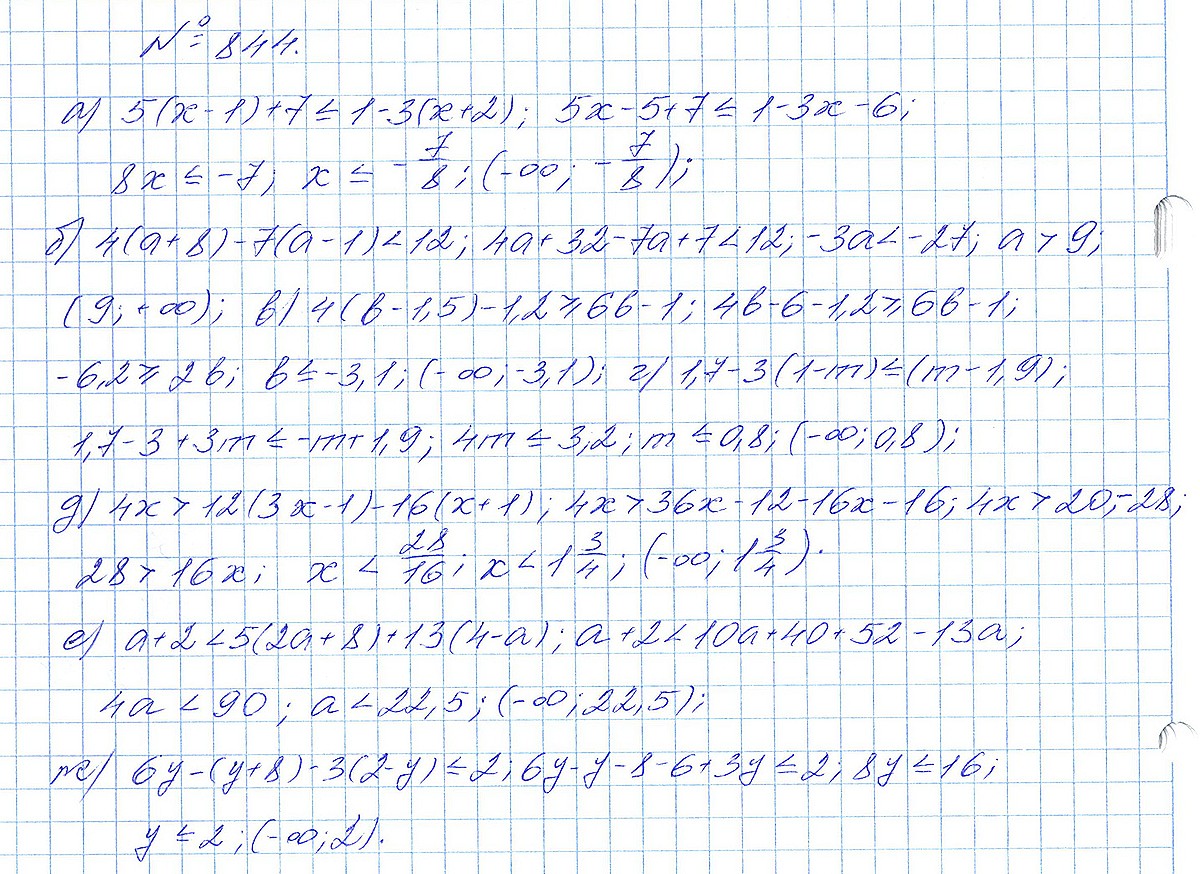 № 844.
а) 5(x-1)+7≤1-3(x+2); 5x-5+7≤1-3x-6;
8x≤-7; x≤-7/8; (-∞; -7/8);
б) 4(a+8)-7(a-1)<12; 4a+32-7a+7<12; -3a<-27; a>9;
(9;+∞); в) 4(b-1,5)-1,2≥6b-1; 4b-6-1,2≥6b-1;
-6,2≥2b; b≤-3,1; (-∞;-3,1); г) 1,7-3(1-m)≤(m-1,9);
1,7-3+3m≤-m+1,9; 4m≤3,2; m≤0,8; (-∞;0,8);
д) 4x>12(3x-1)-16(x+1); 4x>36x-12-16x-16; 4x>20-28;
28>16x; x<28/16; x<1 3/4; (-∞; 1 3/4).
е) a+2<5(2a+8)+13(4-a); a+2<10a+40+52-13a;
4a<90; a<22,5; (-∞;22,5);
ж) 6y-(y+8)-3(2-y)≤2; 6y-y-8-6+3y≤2; 8y≤16;
y≤2; (-∞;2).